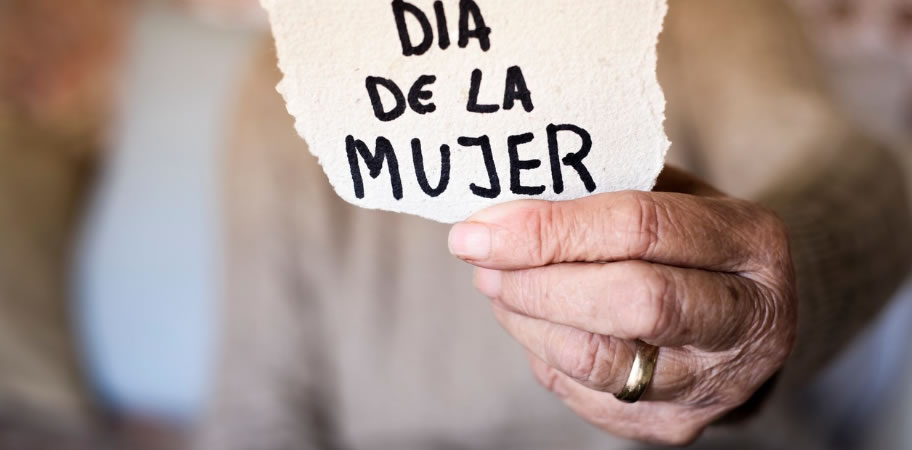 DIA
DE LA
MUJER